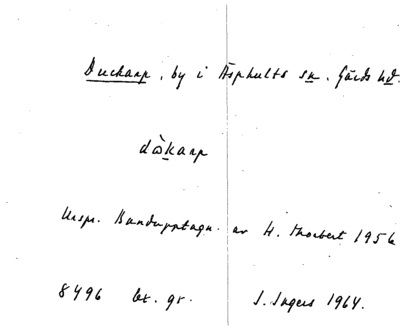 Duckarp, by i Äsphults sn. Gärds hd.
dὼkarp
Uespr. Bandupptagn. av H. Thorbert 1956
8496 bt. gr. I. Ingers 1964.